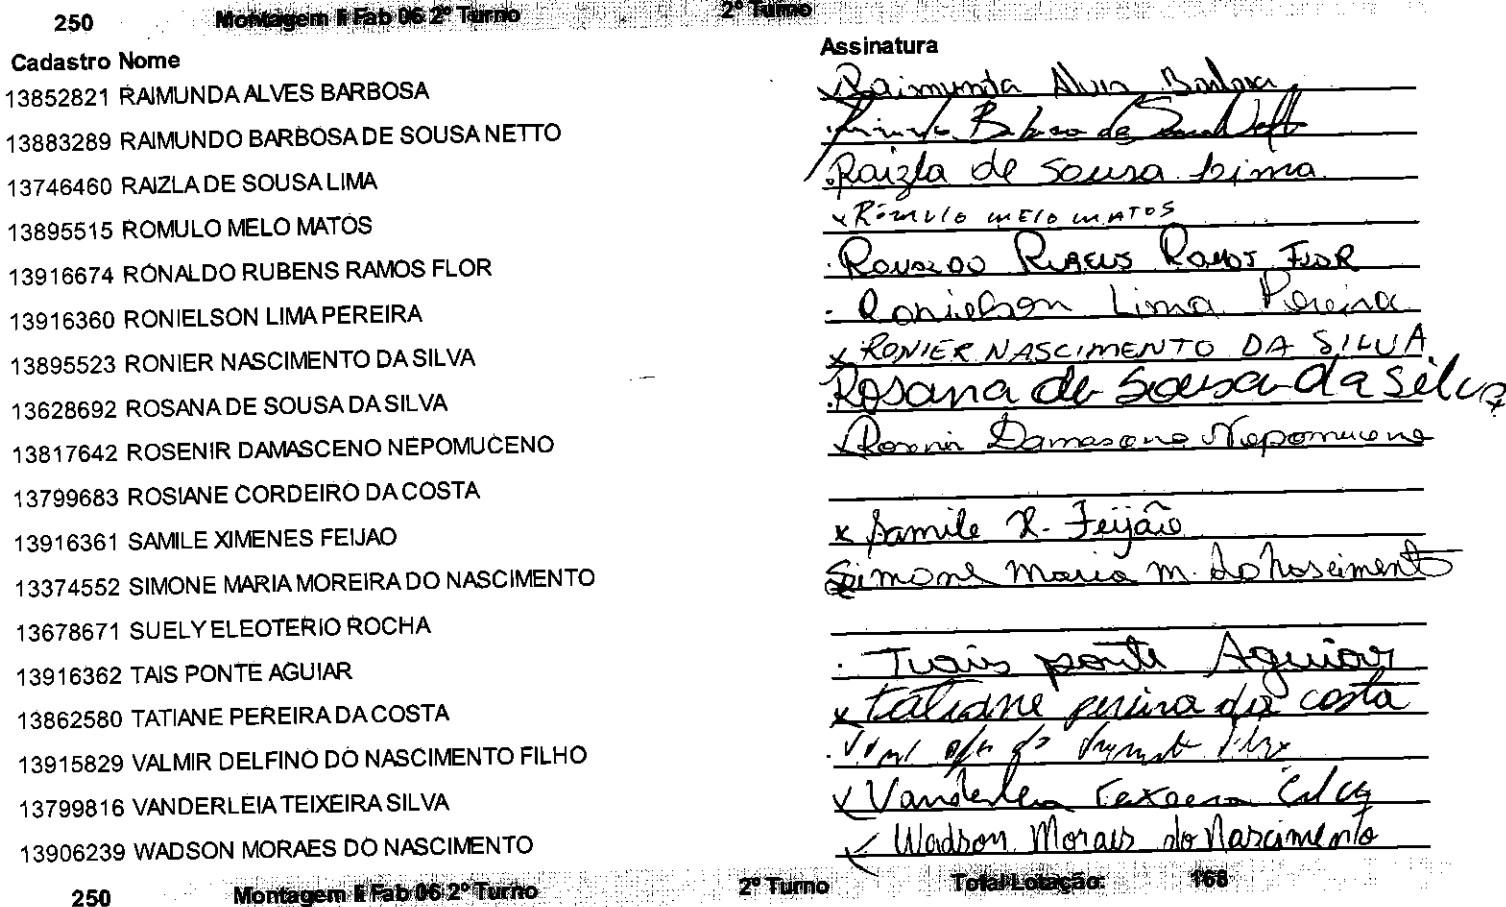 250 Montagem II Fab 06 2º Turno 2º Turno
Cadastro Nome Assinatura
13852821 RAIMUNDA ALVES BARBOSA Raimunda Alves Barbosa
13883289 RAIMUNDO BARBOSA DE SOUSA NETTO
13746460 RAIZLA DE SOUSA LIMA Raizla de Sousa Lima
13895515 ROMULO MELO MATOS x Rômulo melo matos
13916674 RONALDO RUBENS RAMOS FLOR Ronaldo Rubens Ramos Flor
13916360 RONIELSON LIMA PEREIRA Ronielson Lima Pereira
13895523 RONIER NASCIMENTO DA SILVA x RONIER NASCIMENTO DA SILVA
13628692 ROSANA DE SOUSA DA SILVA Rosana de Sousa da Silva
13817642 ROSENIR DAMASCENO NEPOMUCENO x Rosenir Damasceno Nepomuceno
13799683 ROSIANE CORDEIRO DA COSTA
13916361 SAMILE XIMENES FEIJAO x Samile X. Feijão
13374552 SIMONE MARIA MOREIRA DO NASCIMENTO Simone Maria M. do Nascimento
13678671 SUELY ELEOTERIO ROCHA
13916362 TAIS PONTE AGUIAR Tais ponte Aguiar
13862580 TATIANE PEREIRA DA COSTA x Tatiane pereira da costa
13915829 VALMIR DELFINO DO NASCIMENTO FILHO
13799816 VANDERLEIA TEIXEIRA SILVA x Vanderleia Teixeira Silva
13906239 WADSON MORAES DO NASCIMENTO x Wadson Moraes do Nascimento
250 Montagem II Fab 06 2º Turno 2º Turno Total Lotação: 168